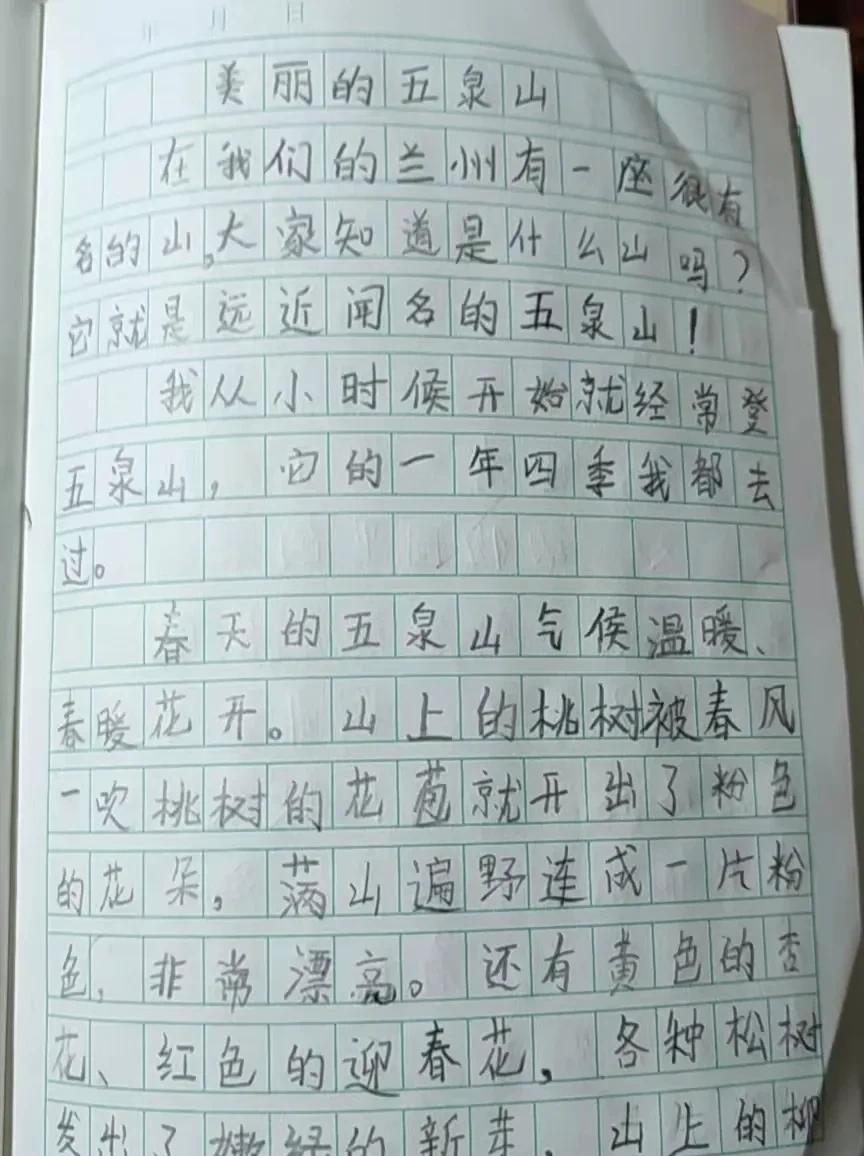 年 月 日
美丽的五泉山
在我们的兰州有一座很有
名的山,大家知道是什么山吗?
它就是远近闻名的五泉山!
我从小时候开始就经常登
五泉山,它的一年四季我都去
过。
春天的五泉山气候温暖、
春暖花开。山上的桃树被春风
一吹桃树的花苞就开出了粉色
的花朵,满山遍野连成一片粉
色,非常漂亮。还有黄色的杏
花、红色的迎春花,各种松树
发出了嫩绿的新芽,山上的柳